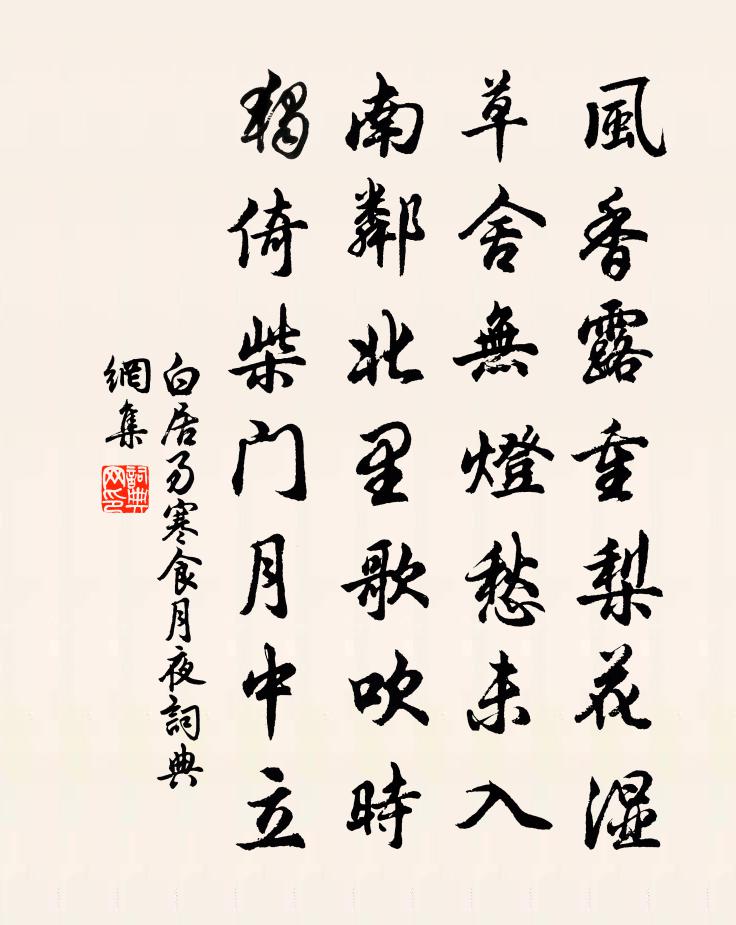 風香露重梨花湿
草舍無燈愁未入
南鄰北里歌吹時
獨倚柴门月中立
白居易寒食月夜詞典
網集
詞典网印